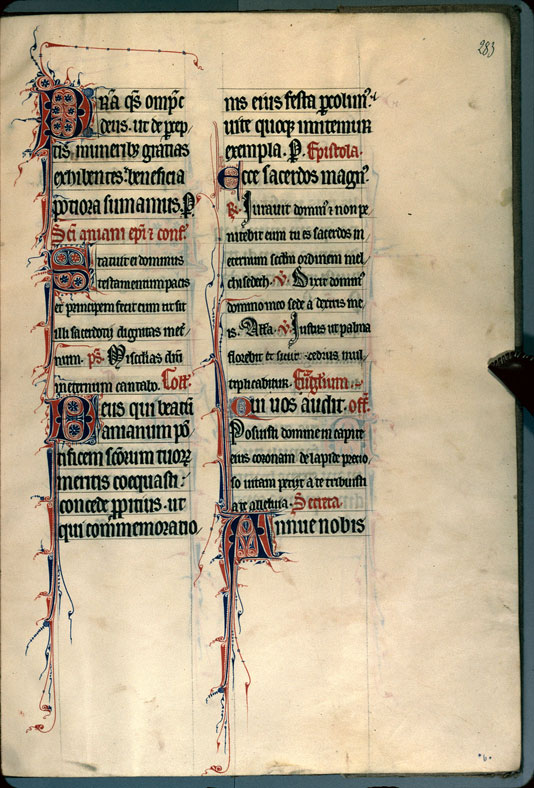 283
Pr̄a q̄s om̄pc̄
deus. ut de p̄cep
tis munerib; gratias
exhibentes: beneficia
potiora sumamus. P.
Sc̄i aniani ep̄i ⁊ conf'
Statuit ei dominus
testamentum pacis
et principem fecit eum ut sit
illi sacerdotij dignitas in et'
num. ps̄. Misc̄dias dn̄i
in eternum cantabo. Coll'.
Deus qui beatū
anianum pō
tificem sc̄orum tuoꝝ
meritis coequasti:
concede p̄pitius. ut
qui commemoratio
nis eius festa ꝑcolim'.
uite quoq; imitemur
exempla. P. Epistola.
Ecce sacerdos magn'.
R̄. Iurauit domin' ⁊ non pe
nitebit eum tu es sacerdos in
eternum scd̄m ordinem mel
chisedech. V̄. Dixit domin'
domino meo sede a dextris me
is. Alla. V̄. Iustus ut palma
florebit et sicut cedrus mul
tiplicabitur. Eūglium.
Qui uos audit. off'.
Posuisti domine in capite
eius coronam de lapide precio
so uitam petijt a te tribuisti
ei alleluia. Secreta
Annue nobis